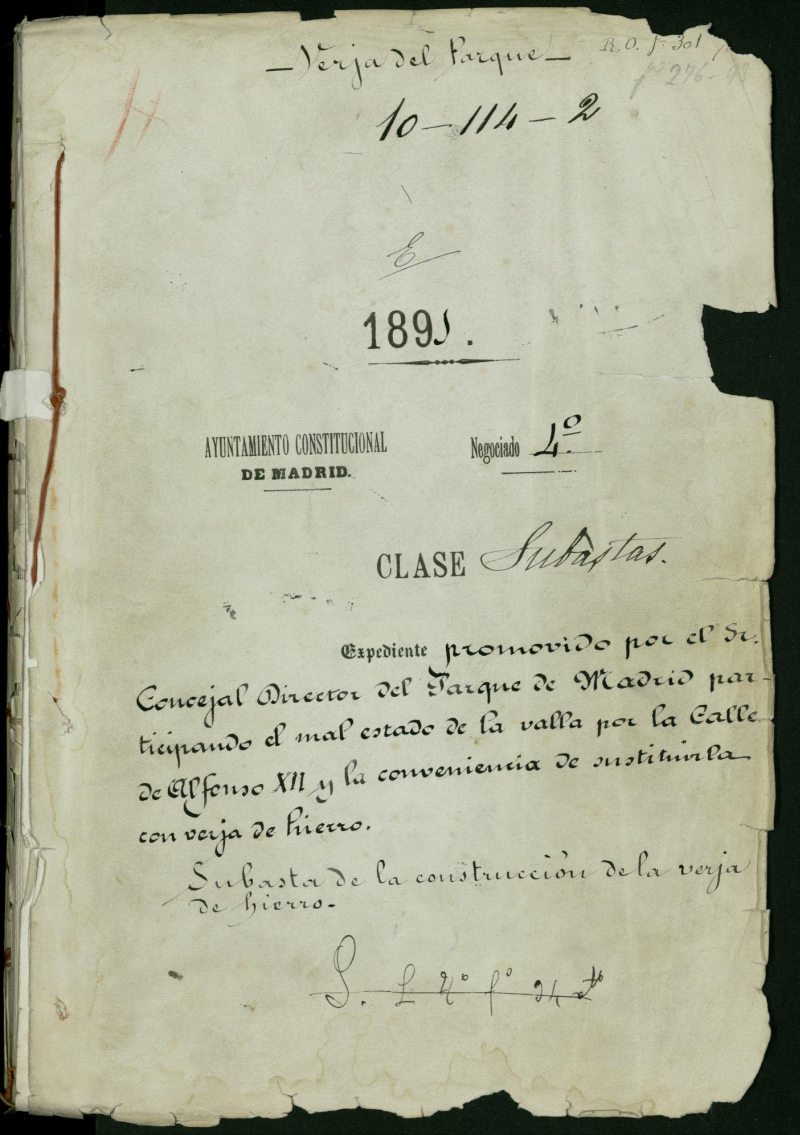 Verja del Parque
R.O. f. 301
fº 276-
10-114-2
E
1891.
AYUNTAMIENTO CONSTITUCIONAL
DE MADRID.
Negociado 4º
CLASE Subastas.
Expediente promovido por el Sr.
Concejal Director del Parque de Madrid par-
ticipando el mal estado de la valla por la Calle
de Alfonso XII y la conveniencia de sustituirla
con verja de hierro.
Subasta de la construcción de la verja
de hierro.